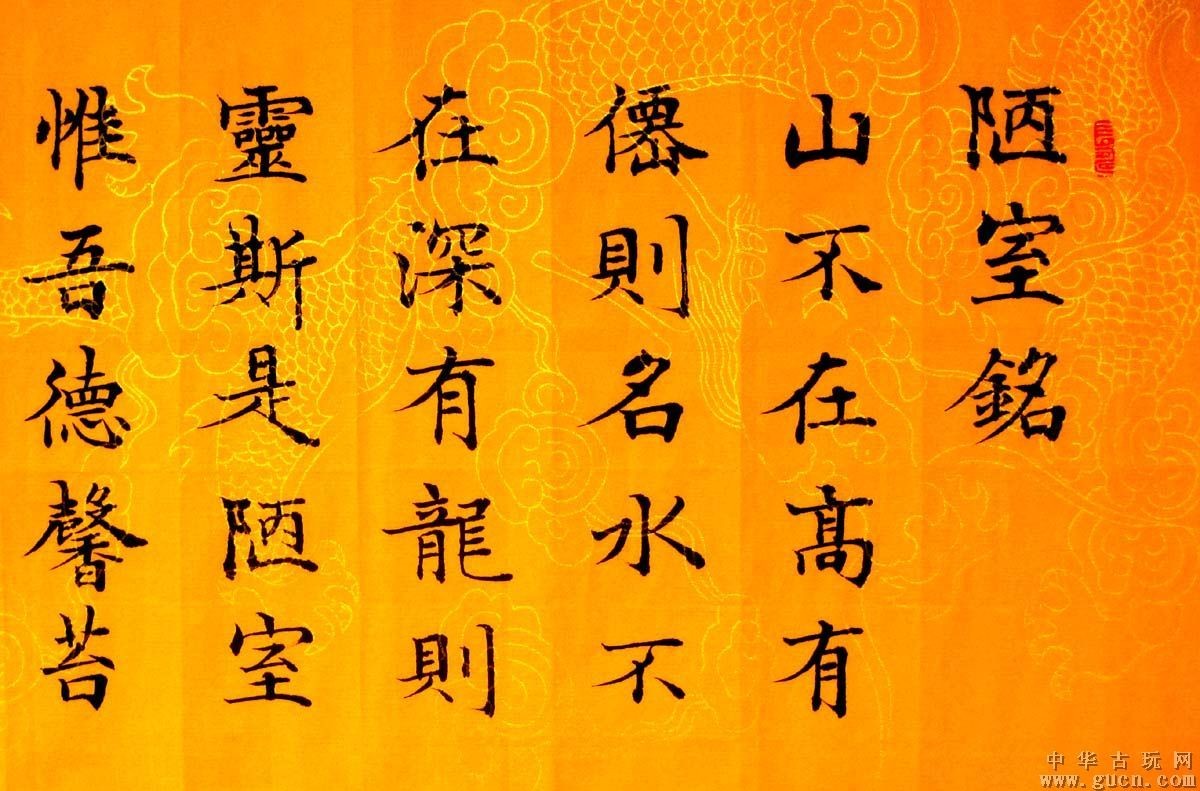 陋室銘
山不在高有
僊則名水不
在深有龍則
靈斯是陋室
惟吾德馨苔
中华古玩网
www.gucn.com